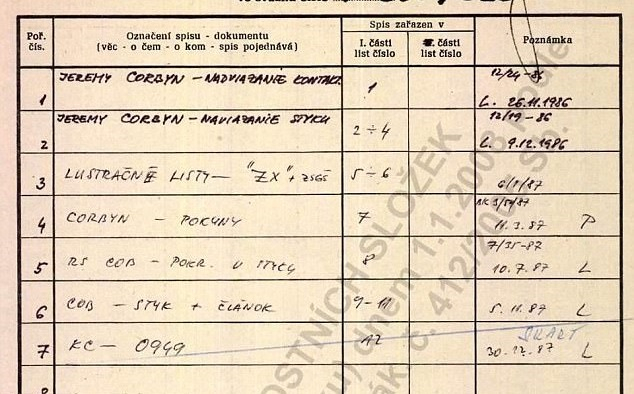 Poř. čís.
Označení spisu - dokumentu
(věc - o čem - o kom - spis pojednává)
Spis zařazen v
I. části list číslo
části list číslo
Poznámka
1 JEREMY CORBYN - NADVIAZANIE KONTAKT. 1 12/24-86
L. 26.11.1986
2 JEREMY CORBYN - NAVIAZANIE STYKU 2÷4 12/19-86
L. 9.12.1986
3 LUSTRAČNÉ LISTY - "ZX" + ZSGŠ 5÷6 6/1/87
4 CORBYN - POKYNY 7
11.3.87 P
5 RS COB - POKR. V STYKU 8 7/35-87
10.7.87 L
6 COB - STYK + ČLÁNOK 9-11 5.11.87 L
7 KC - 0949 12 SKART
30.12.87 L
OSTNÍCH SLOŽEK
dnem 1.1.2008 podle
ák. č. 412/200 Sb.